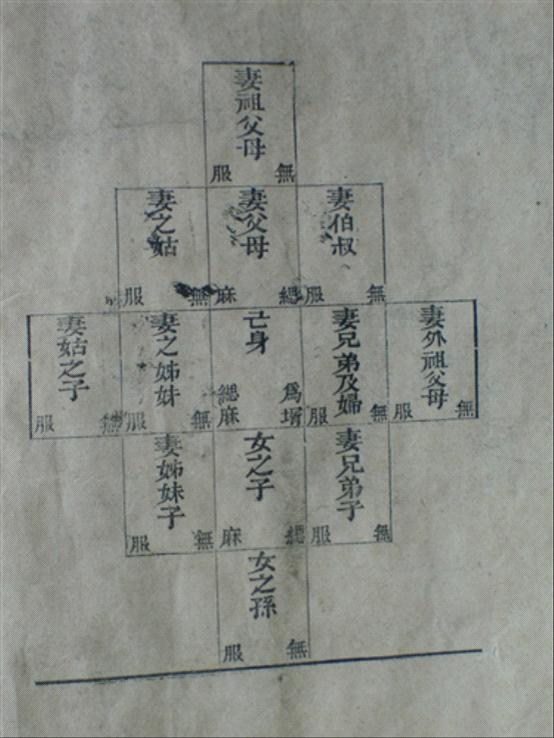 妻祖父母
無服
妻伯叔
無服
妻父母
緦麻
妻之姑
無服
妻外祖父母
無服
妻兄弟及婦
無服
己身
爲壻緦麻
妻之姊妹
無服
妻姑之子
無服
妻兄弟子
無服
女之子
緦麻
妻姊妹子
無服
女之孫
無服